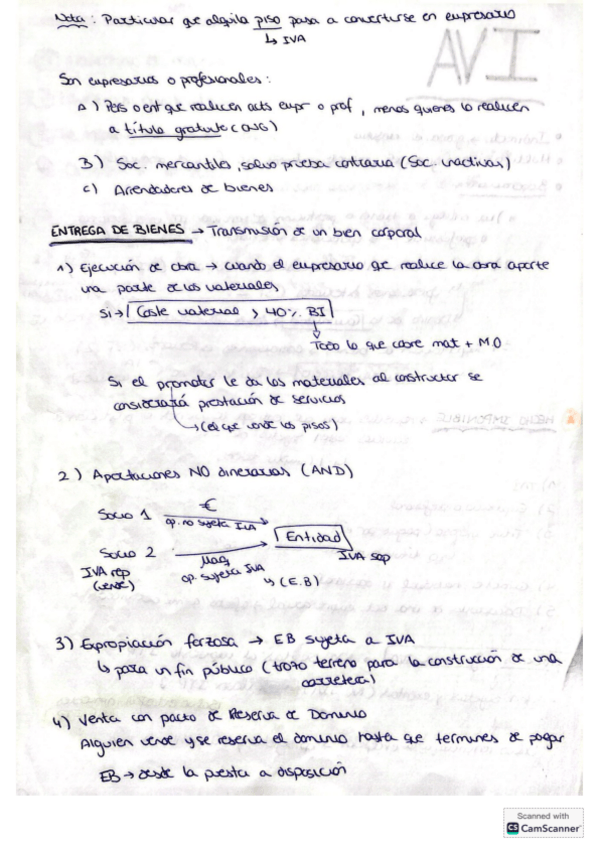 Nota: Particular que alquila piso pasa a convertirse en empresario
↳ IVA
Son empresarios o profesionales:
a) Pers o ent que realicen acts empr o prof, menos quienes lo realicen
a título gratuito (ONG)
B) Soc. mercantiles, salvo prueba contraria (Soc. inactivas)
c) Arrendadores de bienes
ENTREGA DE BIENES → Transmisión de un bien corporal
1) Ejecución de obra → cuando el empresario que realice la obra aporte
una parte de los materiales
Si → Coste material > 40% BI
Todo lo que cobre mat + MO
Si el promotor le da los materiales al constructor se
considerará prestación de servicios
↳ (el que vende los pisos)
2) Aportaciones NO dinerarias (AND)
Socio 1 € op. no sujeta IVA
Entidad
Socio 2 Maq op. sujeta IVA
IVA sop
IVA rep (vende)
↳ (E.B)
3) Expropiación forzosa → EB sujeta a IVA
↳ para un fin público (trozo terreno para la construcción de una
carretera)
4) Venta con pacto de Reserva de Dominio
Alguien vende y se reserva el dominio hasta que termines de pagar
EB → desde la puesta a disposición
Scanned with
CS CamScanner